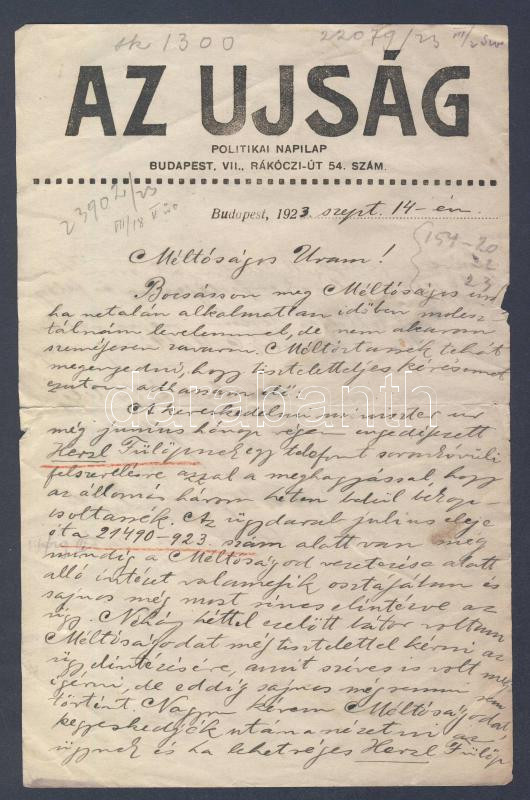 sk 1300
22079/23
AZ UJSÁG
POLITIKAI NAPILAP
BUDAPEST, VII., RÁKÓCZI-ÚT 54. SZÁM.
23902/23
VIII/18
Budapest, 1923. szept. 14-én.
159-20
22
23
Méltóságos Uram!
Bocsásson meg Méltóságos ur
ha netalán alkalmatlan időben moles
tálnám levelemmel, de nem akarom
személyesen zavarni. Méltóztassék tehát
megengedni, hogy tiszteletteljes kérésemet
ezuton adhassam elő.
A kereskedelmi miniszter ur
még junius hónap végén engedélyezett
Herzl Fülöpnek egy telefont soronkivüli
felszerelésre azzal a meghagyással, hogy
az állomás három héten belül bekap
csoltassék. Az ügydarab julius eleje
óta 21490-923. szám alatt van még
mindig a Méltóságod vezetése alatt
álló intézet valamelyik osztályában és
sajnos még most sincs elintézve az
ügy. Néhány héttel ezelőtt bátor voltam
Méltóságodat még tisztelettel kérni az
ügy elintézésére, amit szíves is volt meg
igérni, de eddig sajnos mégsem
történt. Nagyon kérem Méltóságodat,
kegyeskedjék utána nézetni az
ügynek és ha lehetséges Herzl Fülöp
darabanth